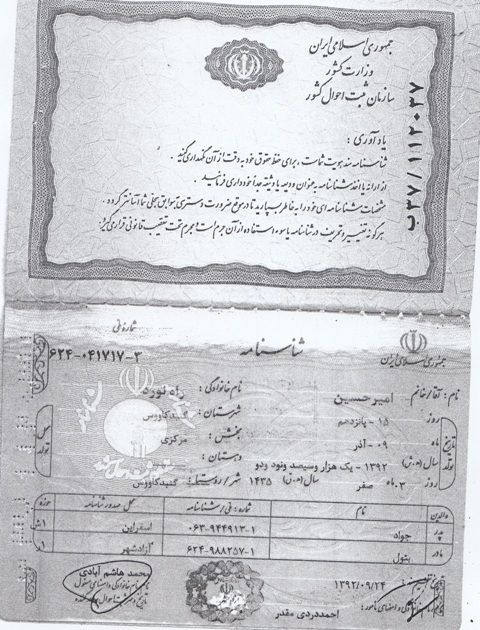 جمهوری اسلامی ایران
وزارت کشور
سازمان ثبت احوال کشور
ب۳۷/۱۱۲۰۳۷
یادآوری :
شناسنامه سند هویت شماست، برای حفظ حقوق خود به دقت از آن نگهداری کنید.
از ارائه یا اخذ شناسنامه به عنوان ودیعه یا وثیقه جداً خودداری فرمائید.
مشخصات شناسنامه ای خود را به خاطر بسپارید تا در موقع ضرورت دسترسی به سوابق سجلی شما آسانتر گردد.
هرگونه تغییر و تحریف در شناسنامه یا سوء استفاده از آن جرم است و مجرم تحت تعقیب قانونی قرار می گیرد.
جمهوری اسلامی ایران
شناسنامه
شماره ملی
۶۲۴-۰۴۱۷۱۷-۳
نام : آقا/خانم امیرحسین
نام خانوادگی : راه نورد
تاریخ تولد
روز ۱۵ - پانزدهم
ماه ۰۹ - آذر
سال (ه.ش) ۱۳۹۲ - یک هزار و سیصد و نود و دو
روز ۳۰ ماه صفر سال (ه.ق) ۱۴۳۵
محل تولد
شهرستان : گنبدکاووس
بخش : مرکزی
دهستان :
شهر/روستا : گنبدکاووس
والدین نام شماره : ملی/شناسنامه محل صدور شناسنامه حوزه
پدر جواد ۰۶۳-۹۴۴۹۱۳-۱ اسفراین
مادر بتول ۶۲۴-۹۸۸۲۵۷-۱ آزادشهر
۱۳۹۲/۰۹/۲۴
احمد دردی مقدر
محمد هاشم آبادی